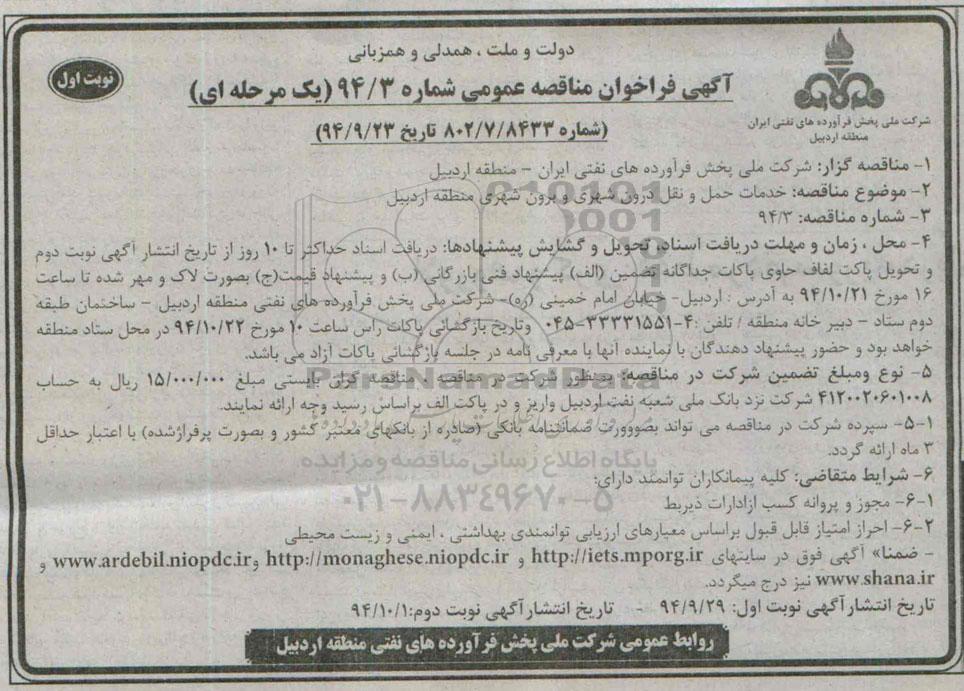 دولت و ملت ، همدلی و همزبانی
نوبت اول
آگهی فراخوان مناقصه عمومی شماره ۹۴/۳ (یک مرحله ای)
(شماره ۸۰۲/۷/۸۴۳۳ تاریخ ۹۴/۹/۲۳)
شرکت ملی پخش فرآورده های نفتی ایران
منطقه اردبیل
۱- مناقصه گزار: شرکت ملی پخش فرآورده های نفتی ایران – منطقه اردبیل
۲- موضوع مناقصه: خدمات حمل و نقل درون شهری و برون شهری منطقه اردبیل
۳- شماره مناقصه: ۹۴/۳
۴- محل ، زمان و مهلت دریافت اسناد، تحویل و گشایش پیشنهادها: دریافت اسناد حداکثر تا ۱۰ روز از تاریخ انتشار آگهی نوبت دوم
و تحویل پاکت لفاف حاوی پاکات جداگانه تضمین (الف) پیشنهاد فنی بازرگانی (ب) و پیشنهاد قیمت(ج) بصورت لاک و مهر شده تا ساعت
۱۶ مورخ ۹۴/۱۰/۲۱ به آدرس : اردبیل- خیابان امام خمینی (ره)- شرکت ملی پخش فرآورده های نفتی منطقه اردبیل – ساختمان طبقه
دوم ستاد – دبیر خانه منطقه / تلفن :۴-۳۳۳۳۱۵۵۱-۰۴۵ وتاریخ بازگشائی پاکات راس ساعت ۱۰ مورخ ۹۴/۱۰/۲۲ در محل ستاد منطقه
خواهد بود و حضور پیشنهاد دهندگان با نماینده آنها با معرفی نامه در جلسه بازگشائی پاکات آزاد می باشد.
۵- نوع ومبلغ تضمین شرکت در مناقصه: بمنظور شرکت در مناقصه ، مناقصه گران بایستی مبلغ ۱۵/۰۰۰/۰۰۰ ریال به حساب
۴۱۲۰۰۲۰۶۰۱۰۰۸ شرکت نزد بانک ملی شعبه نفت اردبیل واریز و در پاکت الف براساس رسید وجه ارائه نمایند.
۵-۱- سپرده شرکت در مناقصه می تواند بصوورت ضمانتنامه بانکی (صادره از بانکهای معتبر کشور و بصورت پرفراژشده) با اعتبار حداقل
۳ ماه ارائه گردد.
۶- شرایط متقاضی: کلیه پیمانکاران توانمند دارای:
۶-۱- مجوز و پروانه کسب ازادارات ذیربط
۶-۲- احراز امتیاز قابل قبول براساس معیارهای ارزیابی توانمندی بهداشتی ، ایمنی و زیست محیطی
- ضمنا» آگهی فوق در سایتهای http://iets.mporg.ir و http://monaghese.niopdc.ir و www.ardebil.niopdc.ir و
www.shana.ir نیز درج میگردد.
تاریخ انتشار آگهی نوبت اول: ۹۴/۹/۲۹ - تاریخ انتشار آگهی نوبت دوم:۹۴/۱۰/۱
روابط عمومی شرکت ملی پخش فرآورده های نفتی منطقه اردبیل
ParsNamadData
پایگاه اطلاع رسانی مناقصه و مزایده
۰۲۱-۸۸۳۴۹۶۷۰-۵